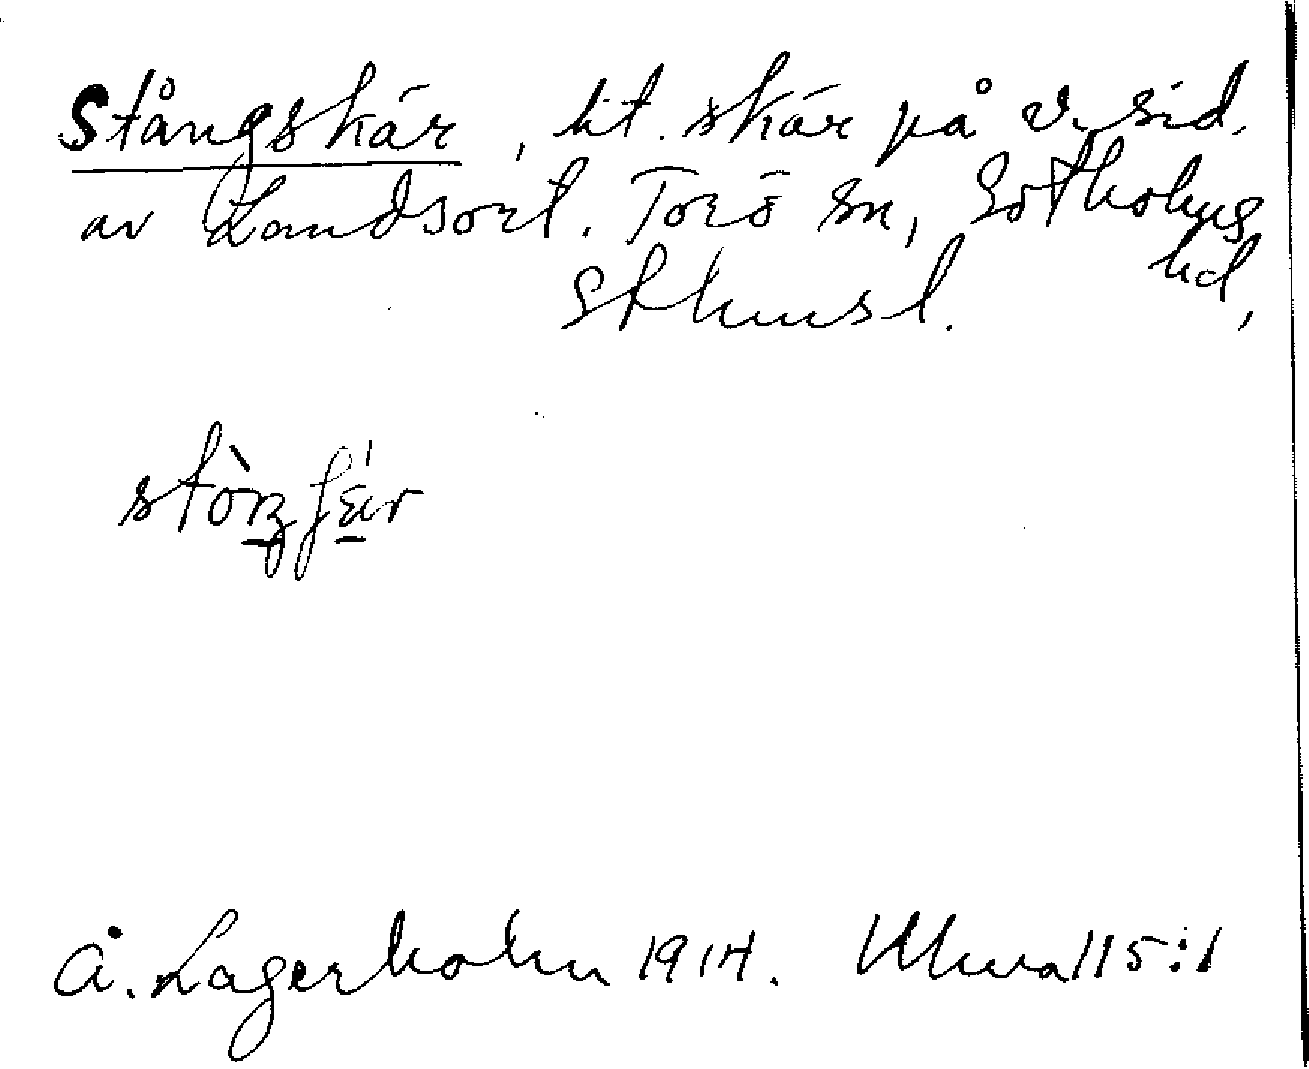 Stångskär, lit. skär på v. sid.
av Landsort. Torö sn, Sotholms
hd,
Sthmsl.
Å. Lagerholm 1914.